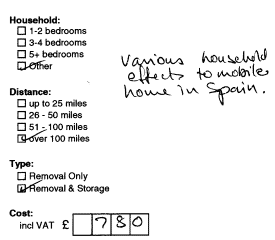 Household:
1-2 bedrooms
3-4 bedrooms
5+ bedrooms
Other
Various household
effects to mobile
home in Spain.
Distance:
up to 25 miles
26 - 50 miles
51 - 100 miles
over 100 miles
Type:
Removal Only
Removal & Storage
Cost:
incl VAT £ 780